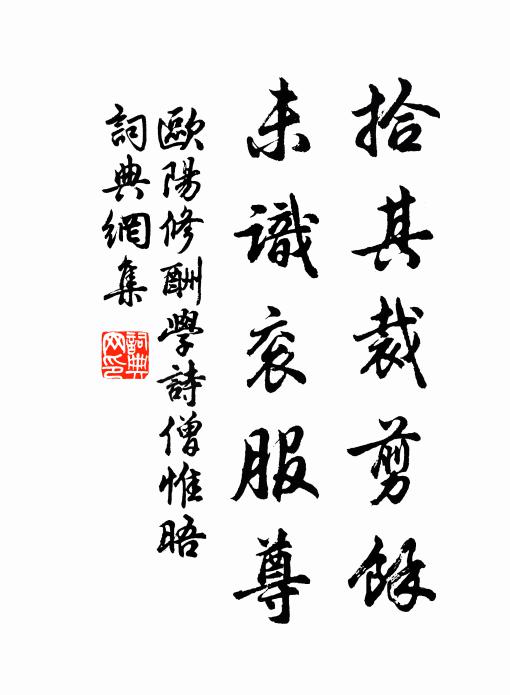 拾其裁剪餘
未識衮服尊
歐陽修酬學詩僧惟晤
詞典網集
詞典
網印